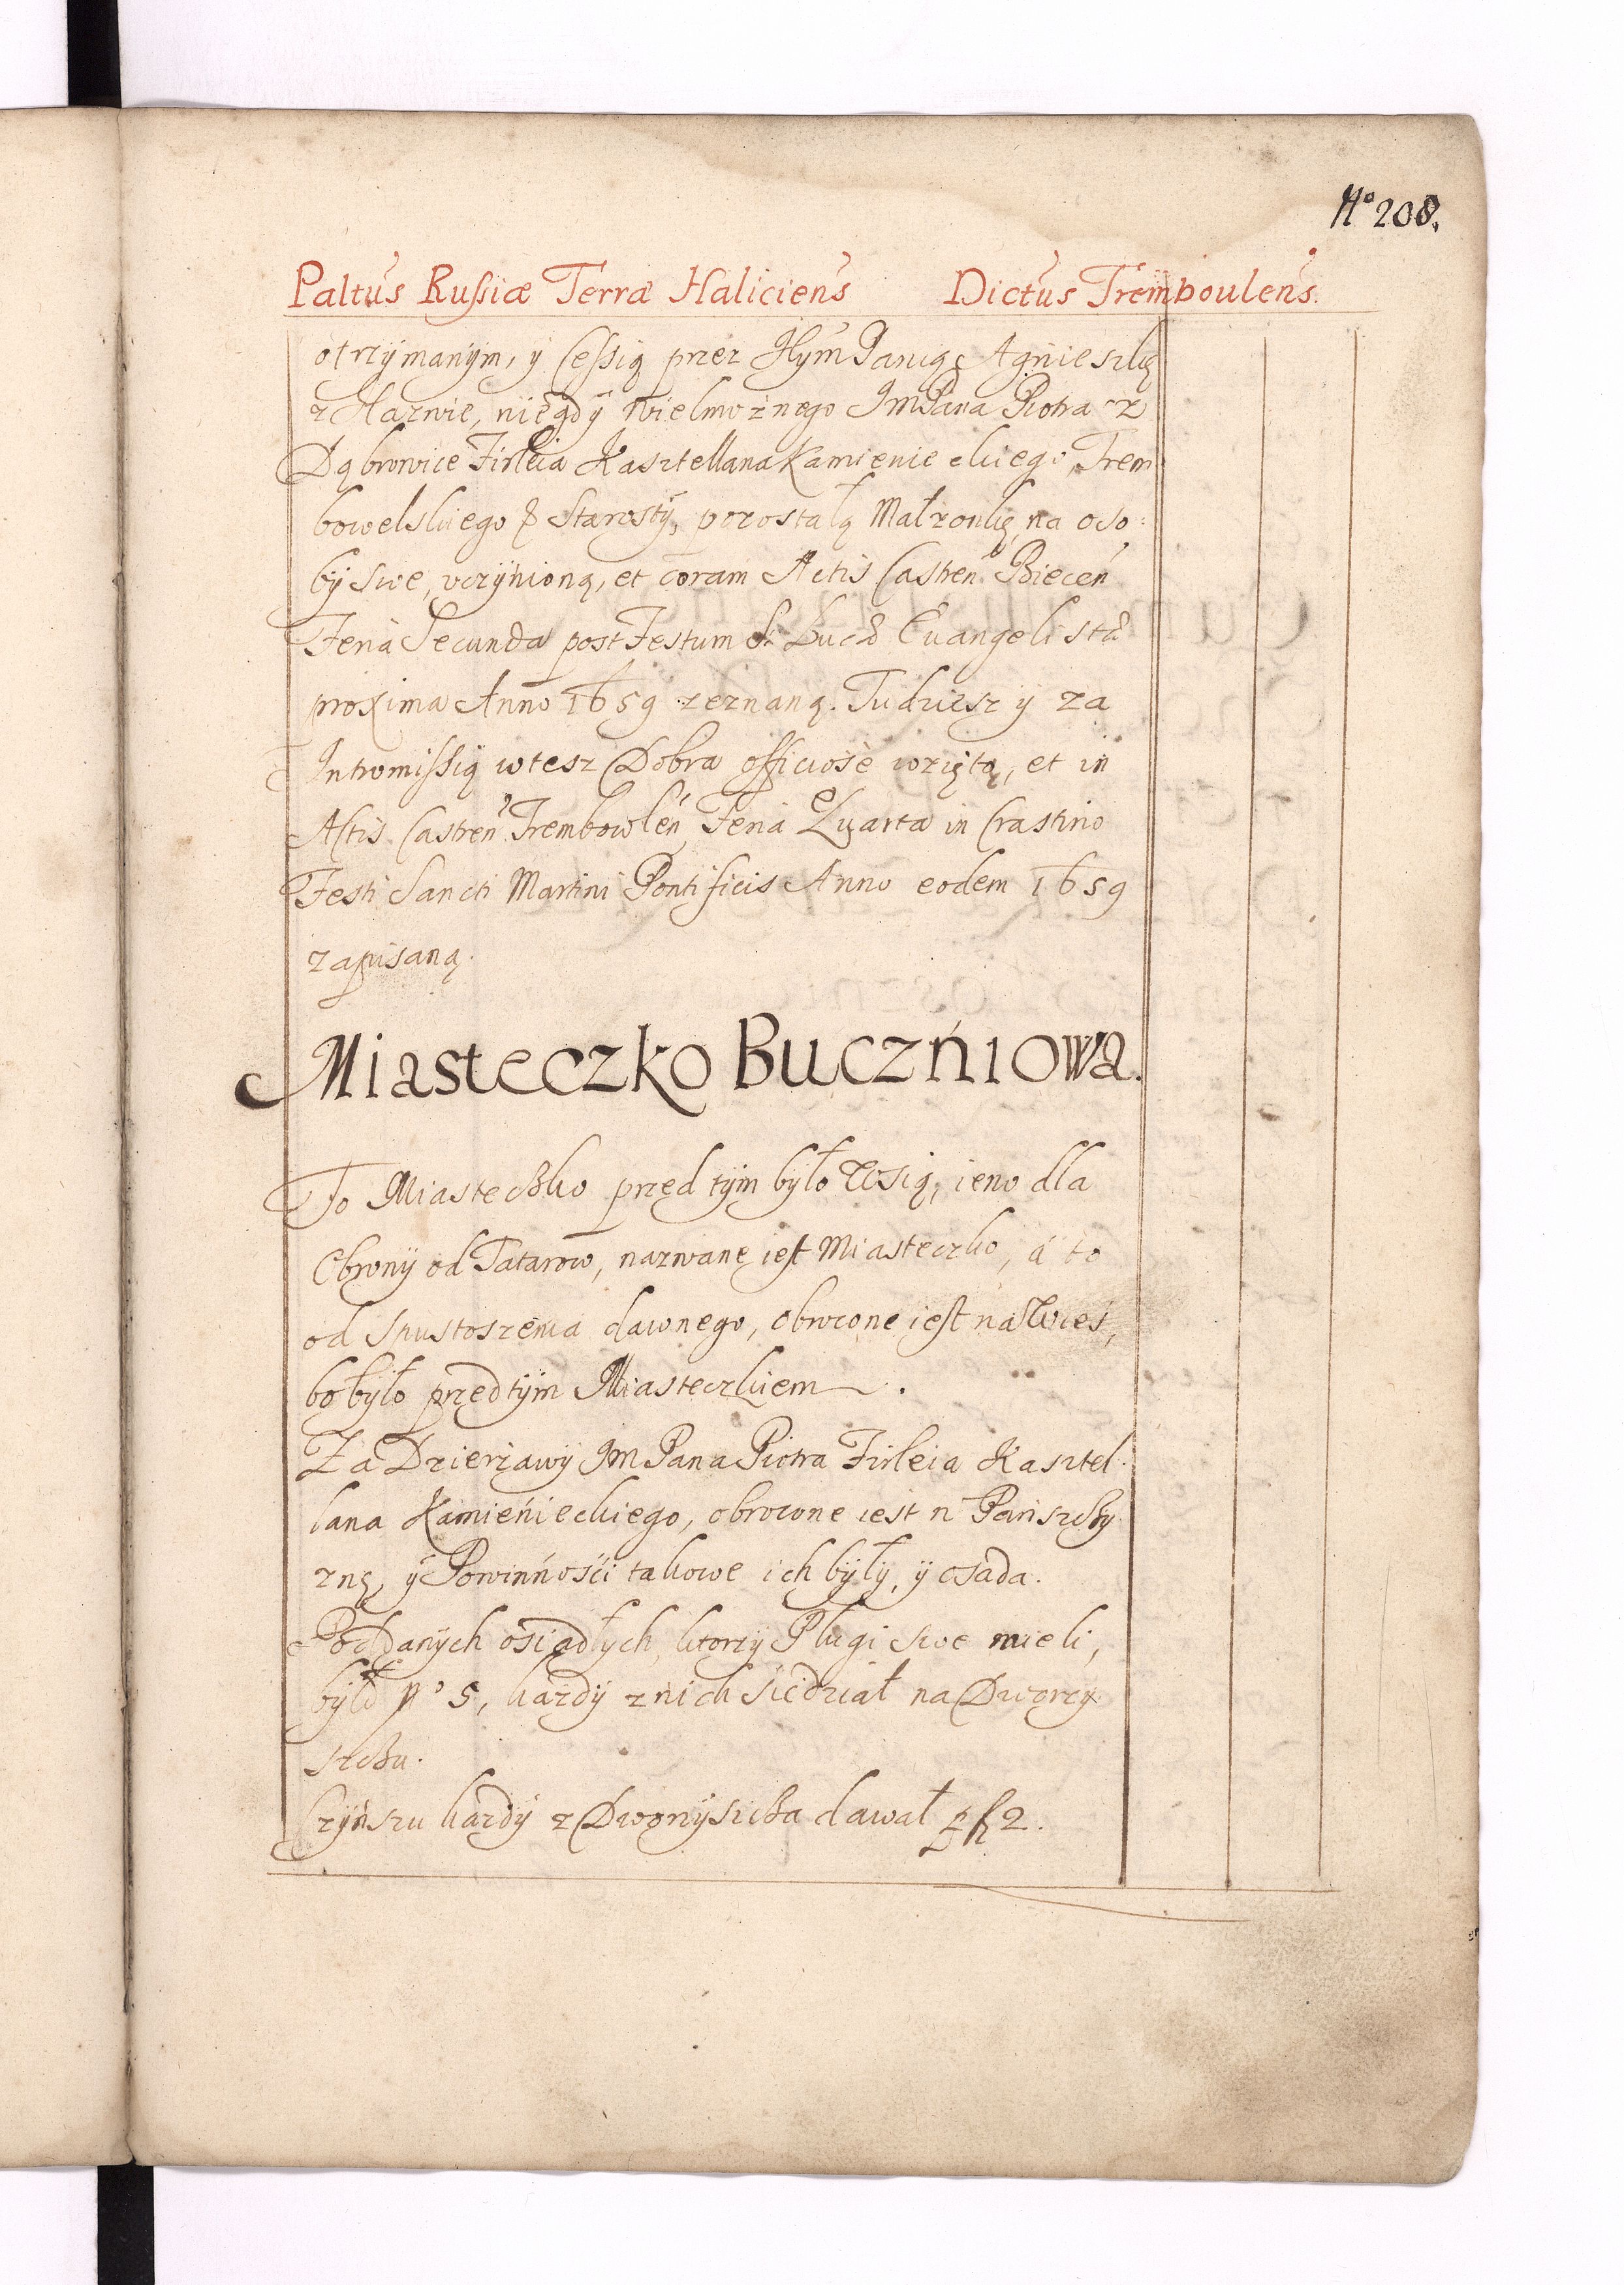 No 208.
Paltus Rußiæ Terræ Haliciens Dictus Tremboulens.
otrzÿmanÿm, ÿ Ceßią przez JHym Panią Agnieszkę
z Harwie, niegdÿ Wielmożnego JmPana Piotra z
Dąbrowice Firleia Kasztellana Kamienieckiego, Trem
bowelskiego & Starostÿ, pozostałą Małzonkę, na oso:
bÿ swe, vczÿnioną, et coram Actis Castren Biecen
Feria Secunda post Festum S. Lucæ Euangelistæ
proxima Anno 1659 zeznaną. Tudziesz ÿ za
Intromißią w tesz Dobra officiose wziętą, et in
Actis Castren Trembowlen Feria Quarta in Crastino
Festi Sancti Martini Pontificis Anno eodem 1659
zapisaną.
Miasteczko Buczńiowa.
To Miasteczko przed tÿm było Wsią, ieno dla
Obronÿ od Tatarow, nazwane iest Miasteczko, á to
od spustoszenia dawnego, obrocone iest na Wieś,
bo bÿło przedtÿm Miasteczkiem.
Za Dzierżawÿ JmPana Piotra Firleia Kasztel:
lana Kamieńieckiego, obrocone iest n Pańszczÿ
znę, ÿ Powinńośći takowe ich bÿłÿ, ÿ osada.
Poddanÿch ośiadłych, ktorzÿ Pługi swe mieli,
bÿło No 5, kazdÿ z nich śiedział na Dworzÿ
szczu.
Czÿnszu kazdÿ z Dworzÿszcza dawał p fl 2.